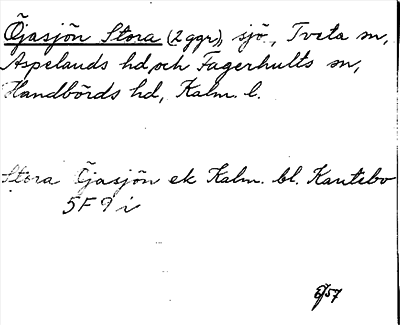 Öjasjön Stora (2 ggr), sjö, Tveta sn,
Aspelands hd, och Fagerhults sn,
Handbörds hd, Kalm. l.
Stora Öjasjön ek Kalm. bl. Kantebo
5F 9 i
57